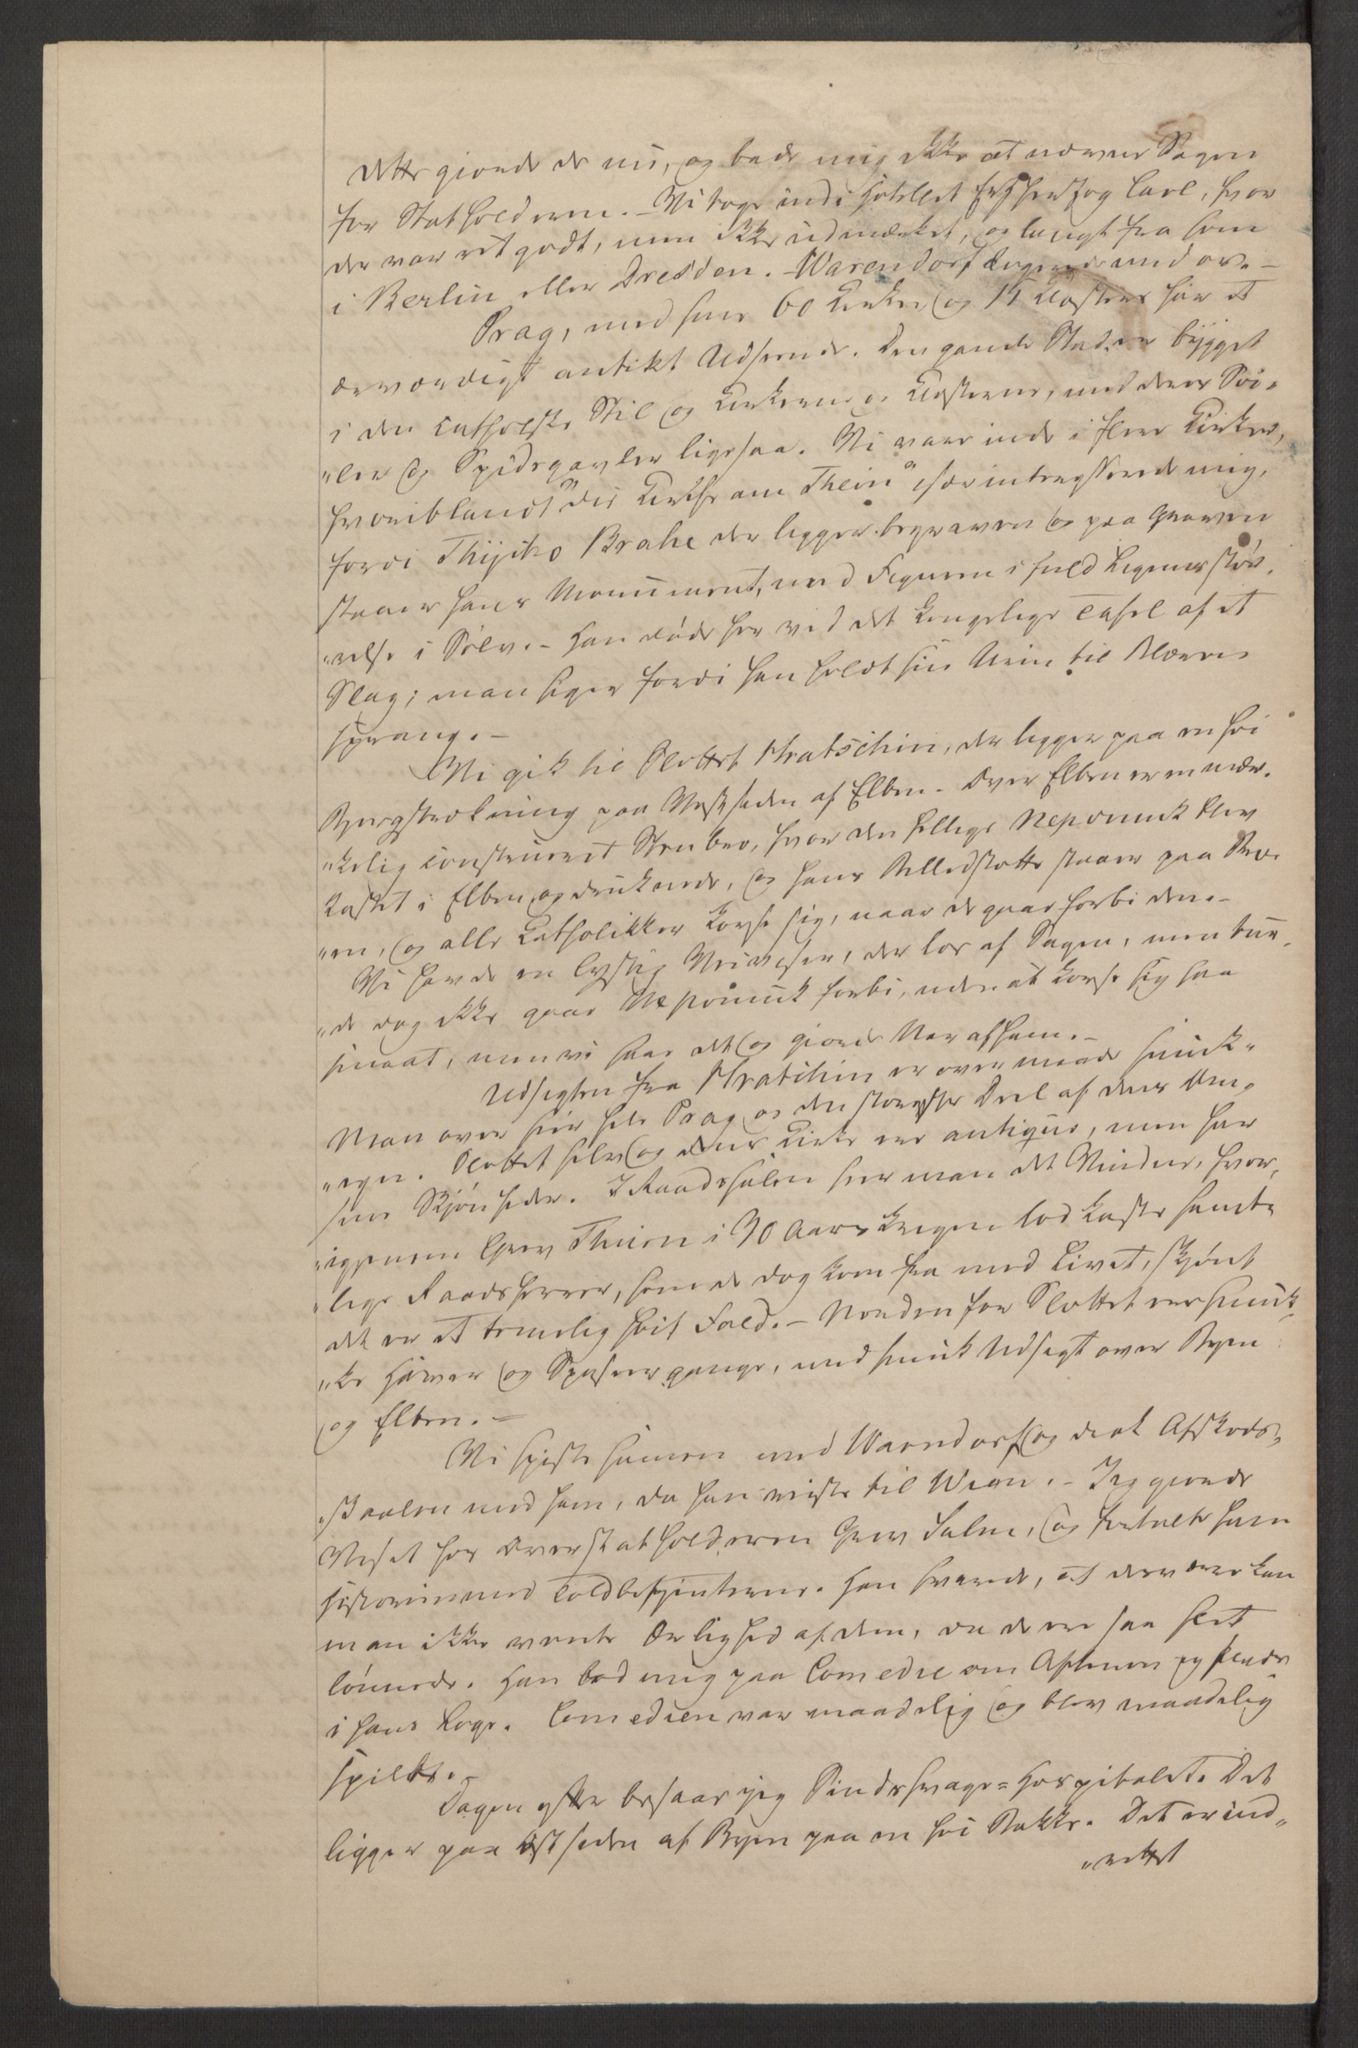 dette gjorde de nu, og bade mig ikke at nævne Sagen
for Statholderen. – Vi toge ind i Hotellet Erzherzog Carl, hvor
der var ret godt, men ikke udmærket, og langt fra som
i Berlin eller Dresden. – Warendorf logerede med os. –
Prag, med sine 60 Kirker og 15 Klostre har et
ærværdigt antikt Udseende. Den gamle Stad er bygget
i den catholske Stil og Kirkerne og Klosterne, med deres Søi-
"ler og Spidsgavler ligesaa. Vi vare inde i flere Kirker,
hvoriblandt "die Kirche am Thein" især intresserede mig,
fordi Thijcho Brahe der ligger begraven og paa Graven
staaer hans Monument, med Figuren i fuld Legemsstør-
"relse i Sølv. – Han døde her ved det kongelige Tafel af et
Slag; man siger fordi han holdt sin Urin til Blæren
sprang. –
Vi gik til Slottet Hratschin, der ligger paa en høi
Bjergstrækning paa Vestsiden af Elben. Over Elben er en mær-
"kelig construeret Steenbro, hvor den hellige Nepomuk blev
kastet i Elben og druknede, og hans Billedstøtte staaer paa Bro-
"en, og alle Catholikker korse sig, naar de gaae forbi den. –
Vi havde en lystig Veiviser, der loe af Sagen, men tur-
"de dog ikke gaae Nepomuk forbi, uden at korse sig saa
smaat, men vi saae det og gjorde Nar af ham. –
Udsigten fra Hratschin er over maade smuk.
Man over seer hele Prag og den største Deel af dens Om-
"egn. Slottet selv og dens Kirke ere antique, men har
sine Skjønheder. I Raadssalen seer man det Vindue, hvor-
"igjennem Grev Thurn i 30 Aars Krigen lod kaste samt-
"lige Raadsherrer, som de dog kom fra med Livet, skjønt
det er et temmelig høit Fald. – Norden for Slottet ere smuk-
"ke Haver og Spadseregange, med smuk Udsigt over Byen
og Elben. –
Vi spiste sammen med Warendorf og drak Afskeds-
"skaalen med ham, da han reiste til Wien. – Jeg gjorde
Visit hos Overstatholderen Grev Salm, og fortalte ham
Historien med Toldbetjenterne. Han svarede, at desværre kan
man ikke vente Ærlighed af dem, da de ere saa slet
lønnede. Han bad mig paa Comedie om Aftenen og sende
i hans Loge. Comedien var maadelig og blev maadelig
spillet. –
Dagen efter besaae jeg Sindssvage-Hospitalet. Det
ligger paa Østsiden af Byen paa en høi Bakke. Det er ind-
"rettet